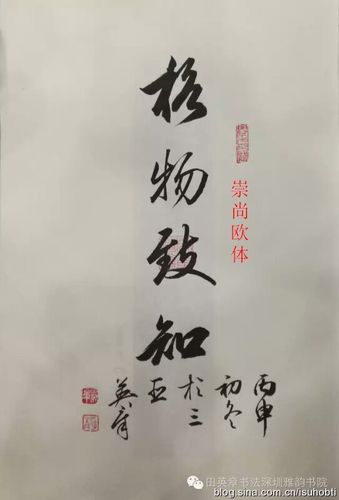 格物致知
崇尚欧体
丙申
初冬
於三
亚
英章
田英章书法深圳雅韵书院
blog.sina.com.cn/isuhobti